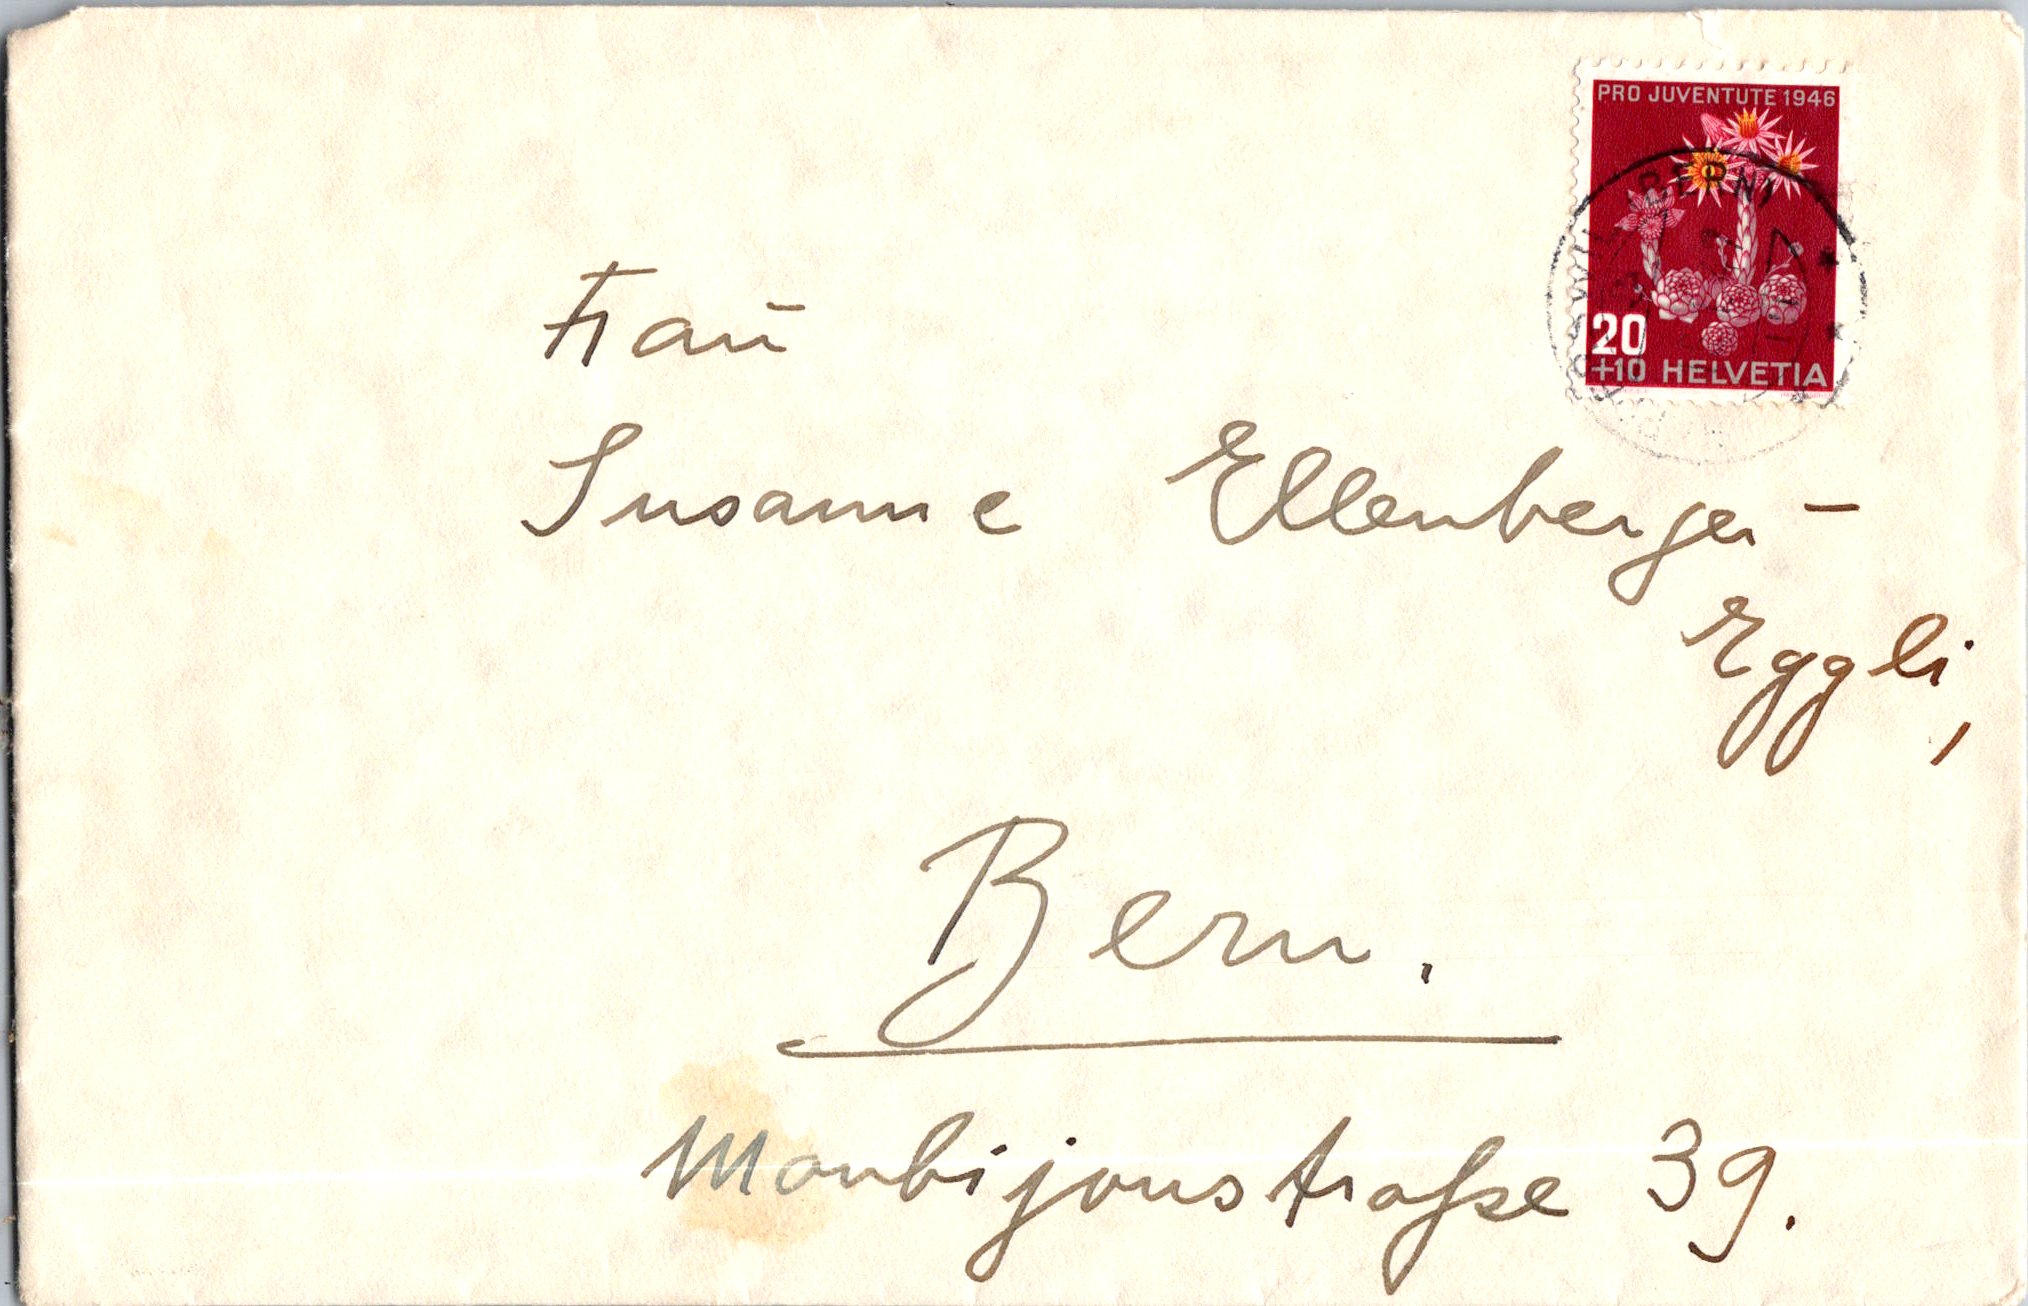 PRO JUVENTUTE 1946
(BERN)
20
+10 HELVETIA
Frau
Susanne Ellenberger-
Eggli,
Bern.
Monbijoustraße 39.